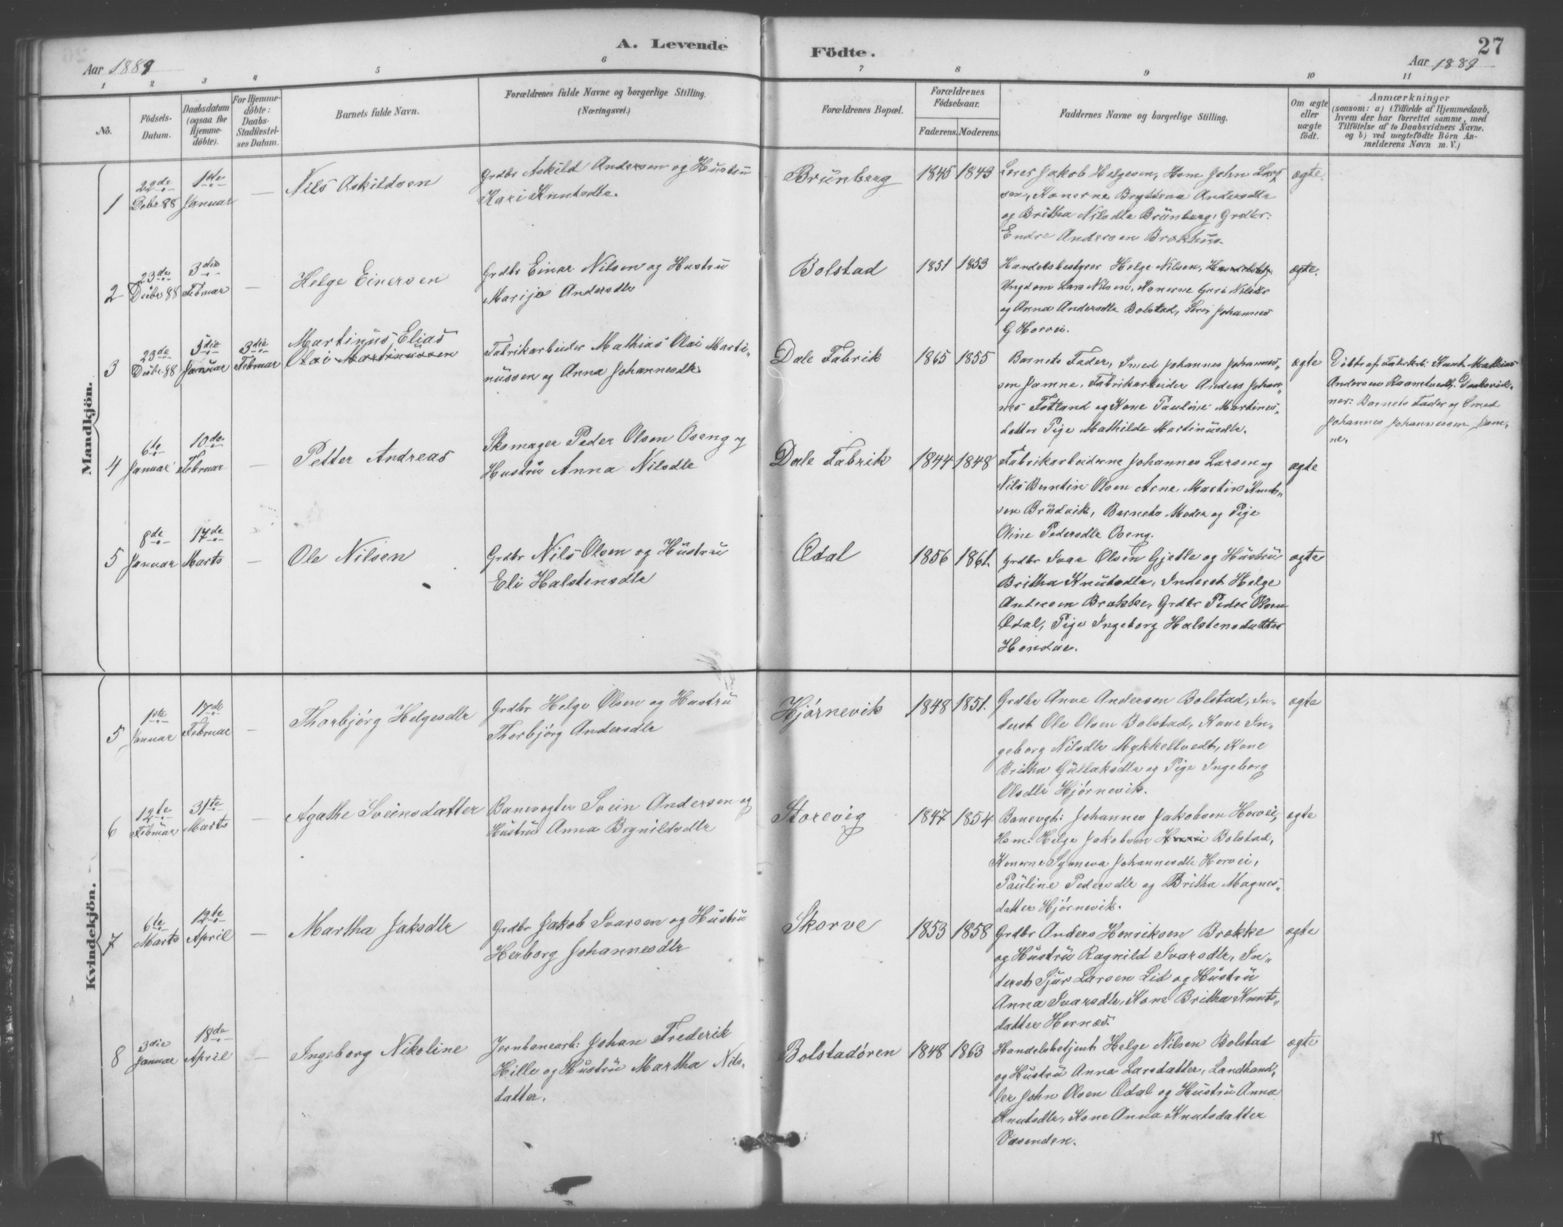 A. Levende Fødte.
27
Aar 1889
Aar 1889
1 2 3 4 5 6 7 8 9 10 11
No.
Födsels-Datum.
Daabsdatum (ogsaa for Hjemme-døbte).
For Hjemme-døbte: Daabs-Stadfæstel-ses Datum.
Barnets fulde Navn.
Forældrenes fulde Navne og borgerlige Stilling. (Næringsvei.)
Forældrenes Bopæl.
Forældrenes Födselsaar.
Faderens. Moderens.
Faddernes Navne og borgerlige Stilling.
Om ægte eller uægte født.
Anmærkninger
(saasom: a) (Tilfælde af Hjemmedaab, hvem der har forrettet samme, med Tilføielse af to Daabsvidners Navne, og b) ved uægtefødte Börn An-melderens Navn m. V.)
Mandkjön.
1
22de Decbr 88
1ste Januar
—
Nils Askildsen
Grdbr Askild Andersen og Hustru
Kari Knutsdtr.
Brünberg
1845 1843
Lars Jakob Helgesen, Hsm John Lars-
sen, Konerne Brytteva Andersdtr
og Britha Nilsdtr Brünberg, Grdbr:
Endre Andersen Brækhus.
ægte.
2
23de Decbr 88
3die Februar
—
Helge Einersen
Grdbr Einar Nilsen og Hustru
Marija Andersdtr
Bolstad
1851 1853
Handelsbestyrer Helge Nilsen,
Ungdom Lars Nilsen, Konerne Guri Nilsdtr
og Anna Andersdtr Bolstad, Johannes
G Horvei.
ægte.
3
23de Decbr 88
5die Januar
3die Februar
Martinus Elias
Olai Martinussen
Fabrikarbeider Mathias Olai Marti-
nussen og Anna Johannesdtr
Dale Fabrik
1865 1855
Barnets Fader, Smed Johannes Johannes-
sen Jamne, Fabrikarbeider Anders Johan-
nes Fotland og Kone Pauline Martines-
datter Pige Mathilde Martinusdtr.
ægte
Døbt af Fabrikb. Knut Mathias
Andersen Daabsvid-
ner: Barnets Fader og Smed
Johannes Johannessen Jam-
ne.
4
6te Januar
10de Februar
—
Petter Andreas
Skomager Peder Olsen Oseng og
Hustru Anna Nilsdtr
Dale Fabrik
1844 1848
Fabrikarbeiderne Johannes Larsen og
Nils Berntin Olsen Arne, Martin Knut-
sen Brüdvik, Barnets Moder og Pige
Oline Pedersdtr Oseng.
ægte
5
8de Januar
17de Marts
—
Ole Nilsen
Grdbr Nils Olsen og Hustru
Eli Halstensdtr
Odal
1856 1861.
Grdbr Ivar Olsen Gjetle og Hustru
Britha Knutsdtr, Inderst Helge
Andersen Brække, Grdbr Peder Olsen
Odal, Pige Ingeborg Halstensdatter
Hondar.
ægte
Kvindekjön.
5
1ste Januar
17de Februar
—
Thorbjörg Helgesdtr
Grdbr Helge Olsen og Hustru
Thorbjörg Andersdtr
Hjørnevik
1848 1851.
Grdbr Anve Andersen Bolstad, In-
derst Ole Olsen Bolstad, Kone In-
geborg Nilsdtr Mykkeltvedt, Kone
Britha Gullaksdtr og Pige Ingeborg
Olsdtr Hjørnevik.
ægte
6
12te Februar
31te Marts
—
Agathe Sveinsdatter
Banevogter Svein Andersen og
Hustru Anna Brynildsdtr
Storevig
1847 1854
Banevgt: Johannes Jakobsen Horvei,
Hsm: Helge Jakobsen Horvei Bolstad,
Konerne Synneva Johannesdtr Horvei,
Pauline Pedersdtr og Britha Magnes-
datter Hjørnevik.
ægte
7
6te Marts
12te April
—
Martha Jaksdtr
Grdbr Jakob Ivarsen og Hustru
Herborg Johannesdtr
Skorve
1853 1858
Grdbr Anders Henriksen Brække
og Hustru Ragnild Ivarsdtr, In-
derst: Sjur Larsen Lid og Hustru
Anna Ivarsdtr, Kone Britha Knuts-
datter Hernæs.
ægte
8
3die Januar
18de April
—
Ingeborg Nikoline
Jernbanearb: Johan Frederik
Hille og Hustru Martha Nils-
datter.
Bolstadören
1848 1863
Handelsbetjent Helge Nilsen Bolstad
og Hustru Anna Larsdatter, Landhand-
ler John Olsen Odal og Hustru Anna
Knutsdtr, Kone Anna Knutsdatter
Vasenden.
ægte